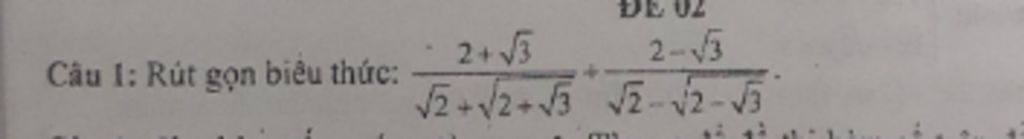 ĐỀ 02
Câu 1: Rút gọn biểu thức: $\frac{2+\sqrt{3}}{\sqrt{2}+\sqrt{2+\sqrt{3}}}+\frac{2-\sqrt{3}}{\sqrt{2}-\sqrt{2-\sqrt{3}}}$.